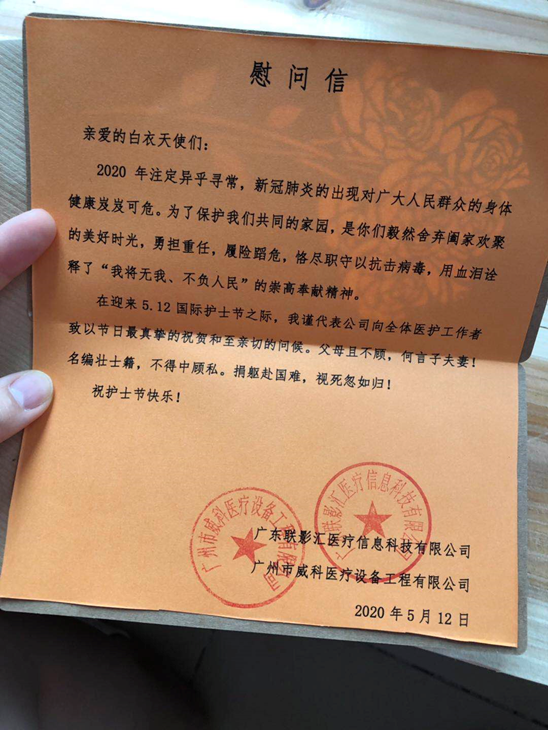 慰问信
亲爱的白衣天使们：
2020 年注定异乎寻常，新冠肺炎的出现对广大人民群众的身体
健康岌岌可危。为了保护我们共同的家园，是你们毅然舍弃阖家欢聚
的美好时光，勇担重任，履险蹈危，恪尽职守以抗击病毒，用血泪诠
释了“我将无我、不负人民”的崇高奉献精神。
在迎来 5.12 国际护士节之际，我谨代表公司向全体医护工作者
致以节日最真挚的祝贺和至亲切的问候。父母且不顾，何言子夫妻！
名编壮士籍，不得中顾私。捐躯赴国难，视死忽如归！
祝护士节快乐！
广东联影汇医疗信息科技有限公司
广州市威科医疗设备工程有限公司
2020 年 5 月 12 日
广州市威科医疗设备工程有限公司
广东联影汇医疗信息科技有限公司